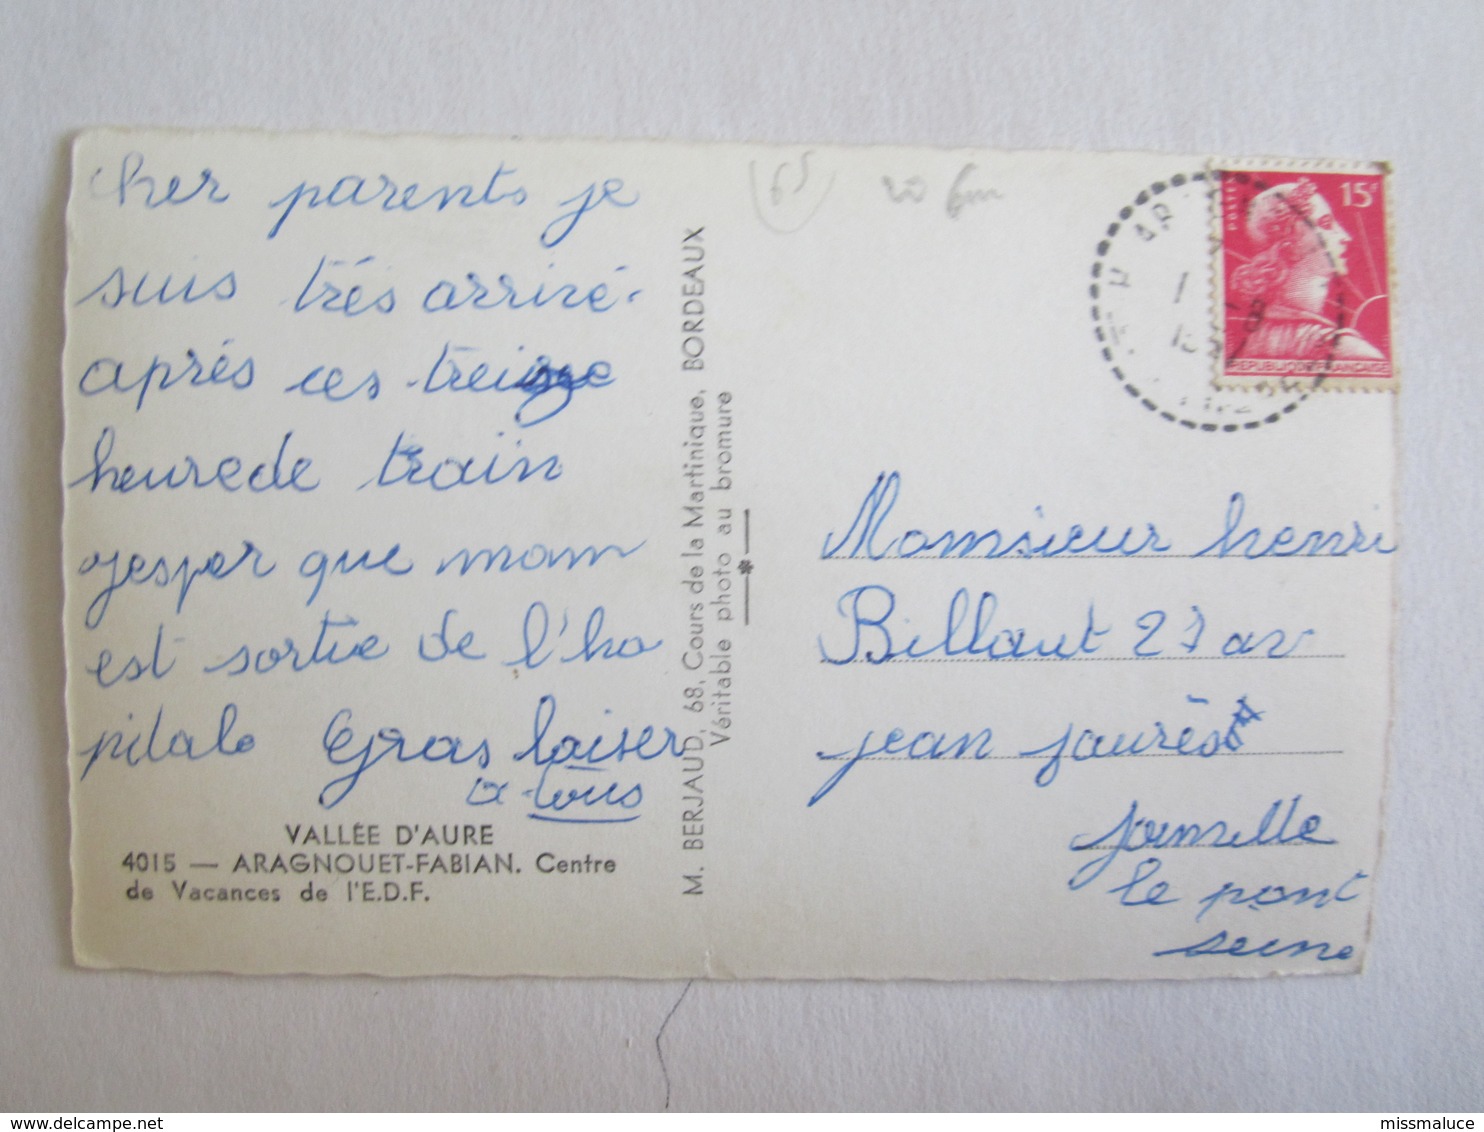 cher parents je
suis très arrivé.
après ces treize
heurede train
jesper que mam
est sortie de l'ho
pitale Gras baiser
a tous
VALLÉE D'AURE
4015 — ARAGNOUET-FABIAN. Centre
de Vacances de l'E.D.F.
M. BERJAUD, 68, Cours de la Martinique, BORDEAUX
Véritable photo au bromure
65
POSTES
15F
REPUBLIQUE FRANÇAISE
Monsieur henri
Billaut 27 av
jean jaurès
joinville
le pont
seine
missmaluce